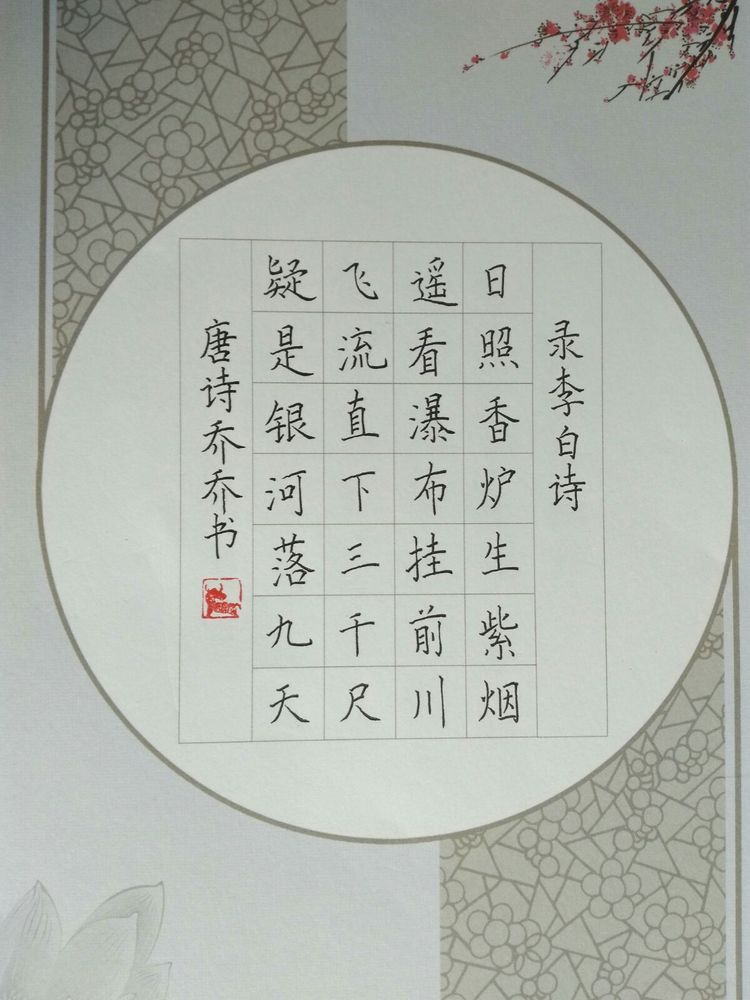 录李白诗
日照香炉生紫烟
遥看瀑布挂前川
飞流直下三千尺
疑是银河落九天
唐诗乔乔书